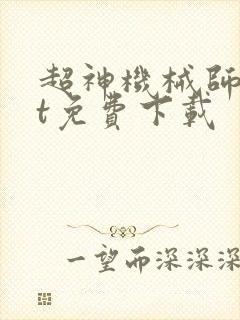 超神機械師
t免費下載
一望而深深深